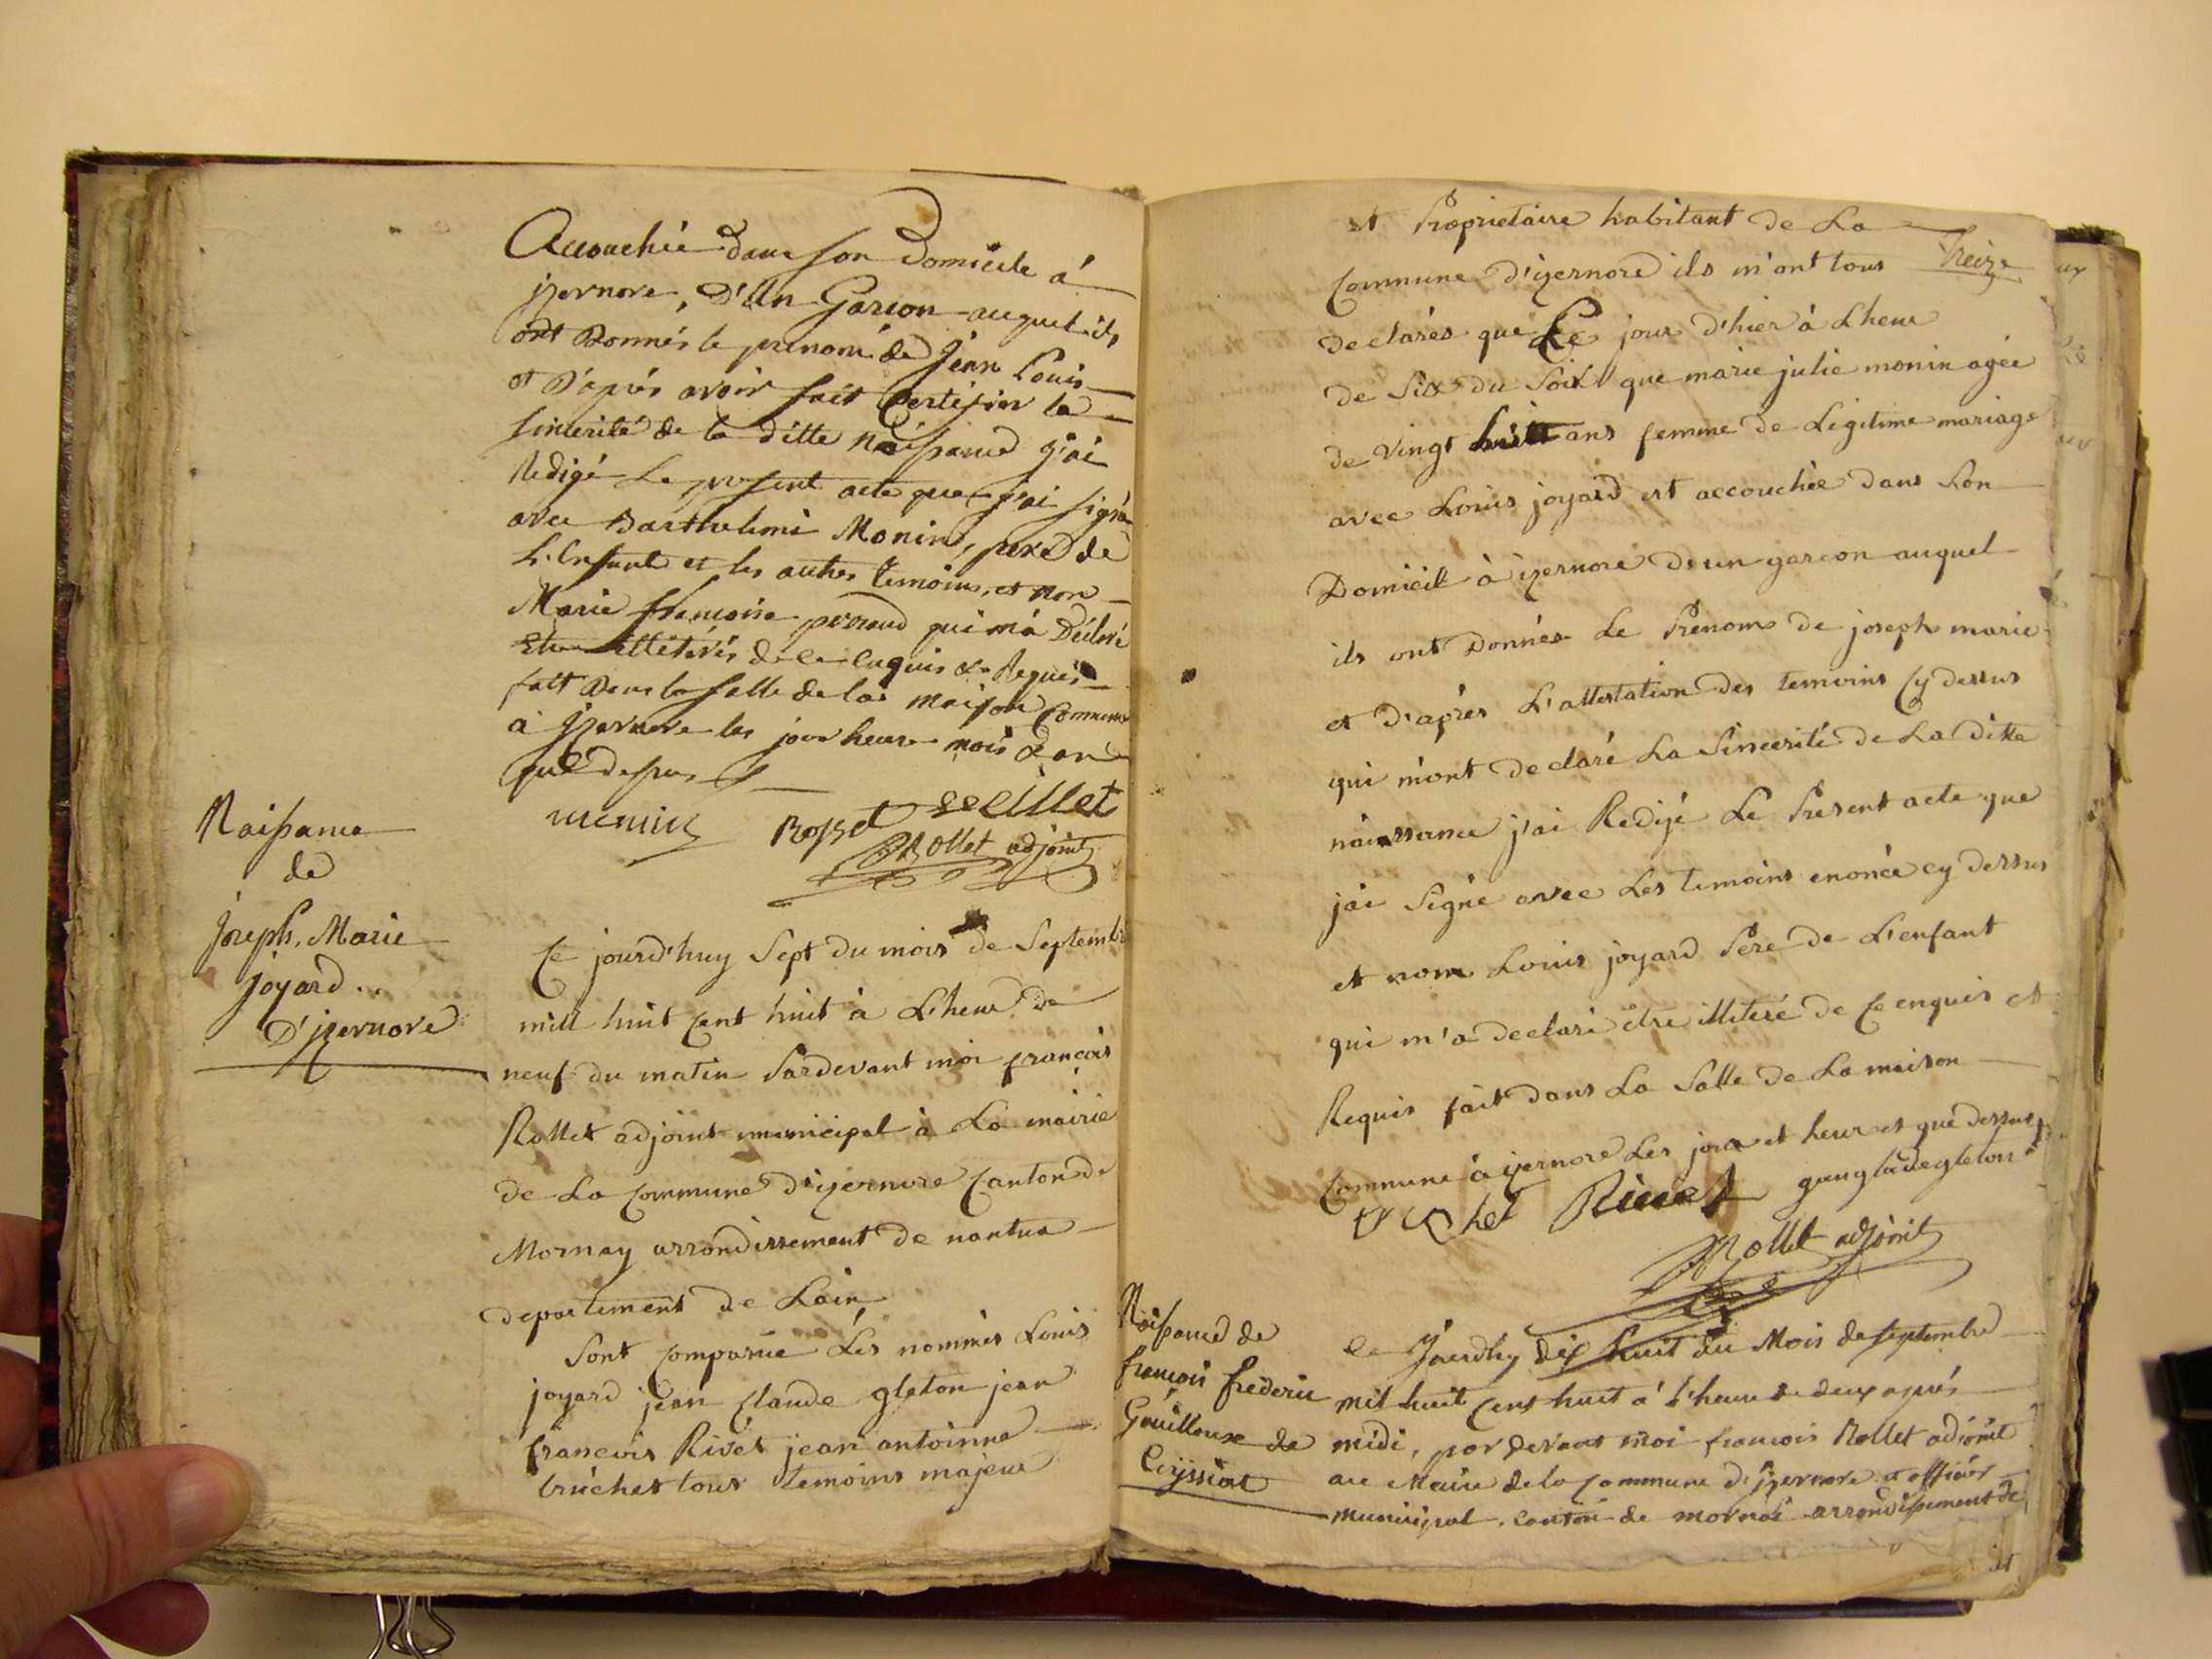 Accouchée dans son Domicile à
jzernore, D'Un Garcon auquel ils
ont Donnés le prenom de Jean Louis
et D'après avoir fait Certifier la
sincerité de la ditte Naissance j'ai
Redigé Le present acte que j'ai signé
avec Barthelemi Monin, pere de
L'Enfant et les autres temoins, et non
Marie francoise qui m'a Déclaré
Etre illétérés de ce enquis & Requis
fait Dans la salle de la maison Commune
à Jzernore les jour heure mois & an
que dessus
monin Rosset
Rollet adjoint
Naissance
de
Joseph, Marie
joyard
D'jzernore
Ce jourd'huy Sept du mois de Septembre
mill huit Cent huit à L'heure de
neuf du matin Pardevant moi françois
Rollet adjoint municipal à La mairie
de La Commune d'izernore Canton de
Mornay arrondissement de nantua
departement de Lain
Sont Comparüe Les nommés Louis
joyard jean Claude gleton jean
francois Rivet jean antoinne
bruchet tous temoins majeur
et Proprietaire habitant de La
Treize
Commune D'izernore ils m'ont tous
declarés que Le jour d'hier à Lheure
de Six du Soir que marie julie monin agée
de Vingt huit ans femme de Légitime mariage
avec Louis joyard est accouchée dans Son
Domicil à izernore d'un garcon auquel
ils ont Donnés Le Prenom de joseph marie
et D'après L'attestation des temoins Cy dessus
qui m'ont declaré La Sincerité de La ditte
naissance j'ai Redigé Le Present acte que
j'ai Signé avec Les temoins enoncé cy dessus
et nom Louis joyard Pere de L'enfant
qui m'a declaré être illiteré de Ce enquis et
Requis fait dans La Salle de La maison
Commune à izernore Les jour et heur et que dessus
Rivet gleton
Rollet adjoint
Naissance de
francois frederic
Gouilloux de
Ceyssiat
Ce Jourdhuy dix huit du Mois de septembre
mil huit Cent huit à L'heure de deux après
midi, par devant moi francois Rollet adjoint
au Maire de la Commune d'jzernore et officier
municipal, canton de mornai arrondissement de